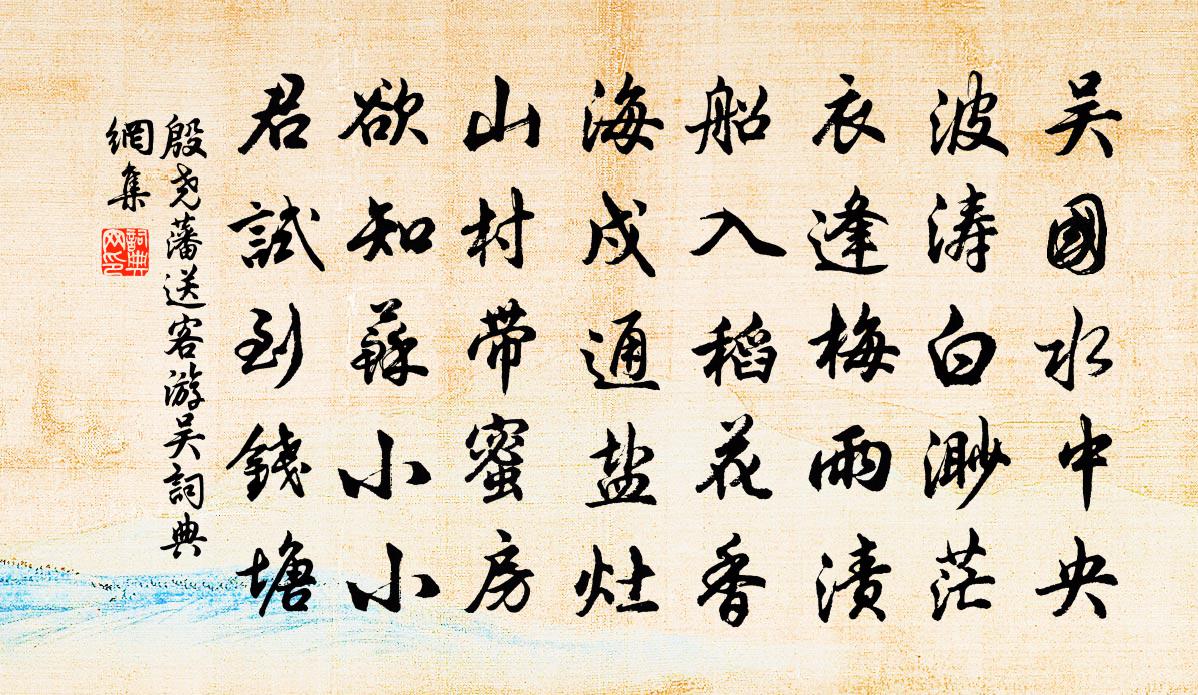 吴國水中央
波涛白渺茫
衣逢梅雨漬
船入稻花香
海戍通盐灶
山村带蜜房
欲知蘇小小
君試到錢塘
殷尧藩送客游吴詞典
網集
詞典網印